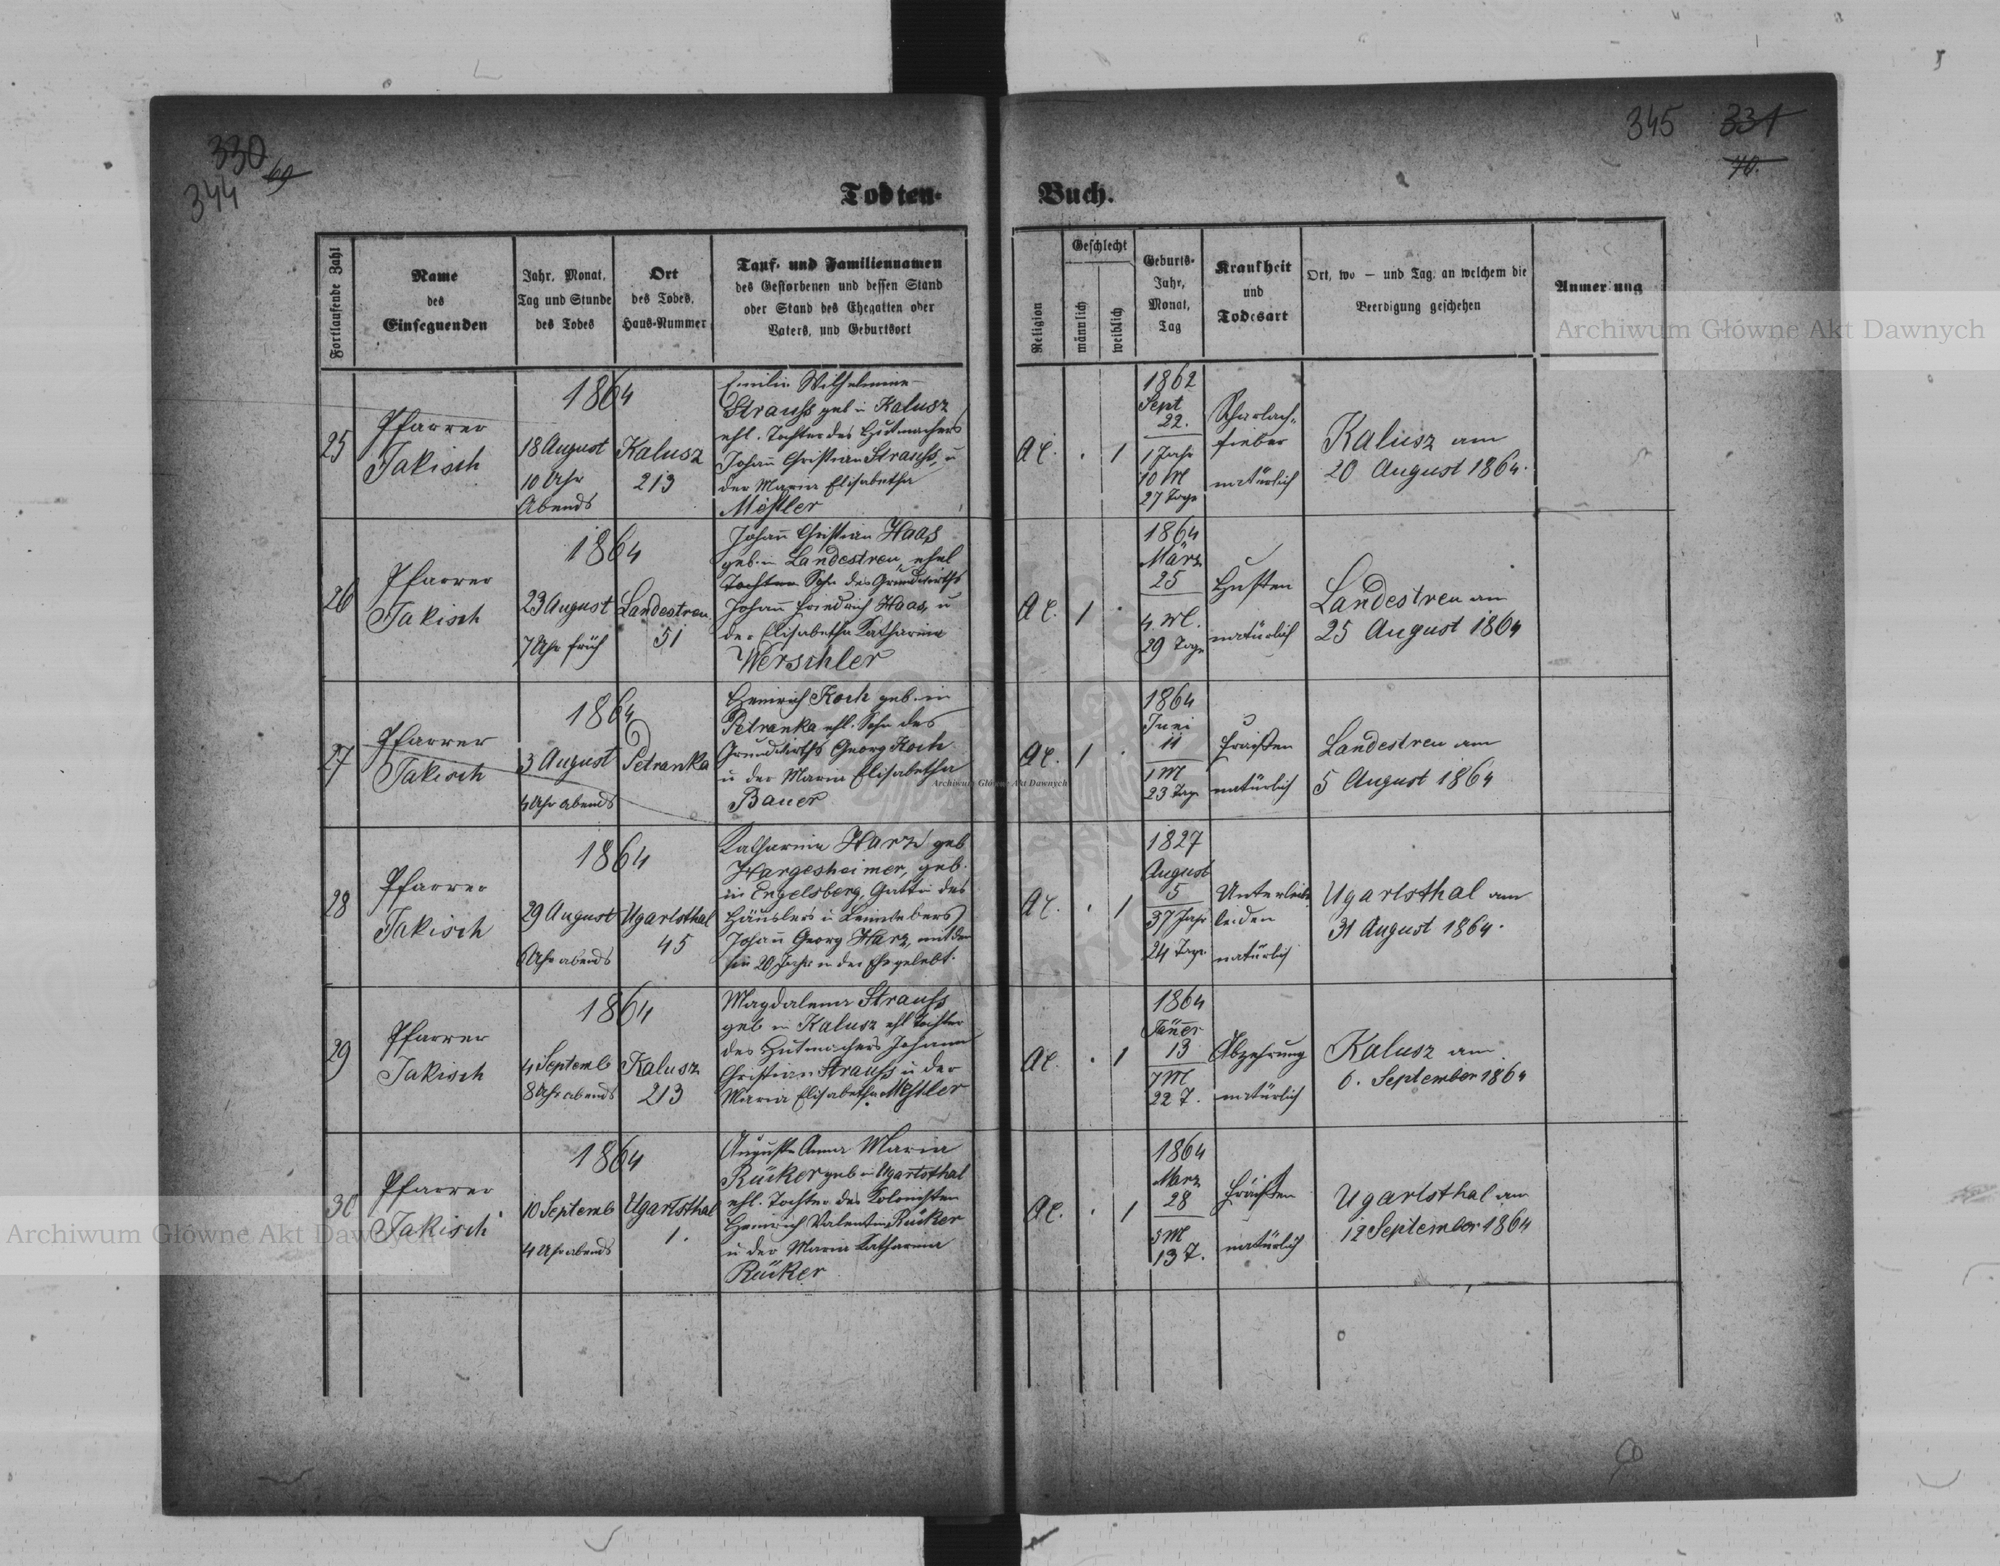 330
69
344
345 331
70.
Todten-
Buch.
Fortlaufende Zahl
Name
des
Einsegnenden
Jahr, Monat,
Tag und Stunde
des Todes
Ort
des Todes,
Haus-Nummer
Tauf- und Familiennamen
des Gestorbenen und dessen Stand
oder Stand des Ehegatten oder
Vaters, und Geburtsort
Religion
Geschlecht
männlich
weiblich
Geburts-
Jahr,
Monat,
Tag
Krankheit
und
Todesart
Ort, wo — und Tag, an welchem die
Beerdigung geschehen
Anmer ung
Archiwum Główne Akt Dawnych
25
Pfarrer
Jakisch
1864
18 August
10 Uhr
Abends
Kalusz
213
Emilie Wilhelmine
Strauss geb in Kalusz
ehl. Tochter des Hutmachers
Johañ Christian Strauss, u
der Maria Elisabetha
Mößler
AC. . 1
1862
Sept
22.
1 Jahr
10 M
27 Tage
Scharlach-
fieber
natürlich
Kalusz am
20 August 1864.
26
Pfarrer
Jakisch
1864
23 August
7 Uhr früh
Landestreu
51
Johañ Christian Haas
geb. in Landestreu, ehel
Tochter Sohn des Grundwirths
Johañ Friedrich Haas, u
der Elisabetha Katharina
Werschler
AC. 1 .
1864
März
25
4. M.
29 Tage
Husten
natürlich
Landestreu am
25 August 1864
27
Pfarrer
Jakisch
1864
3 August
4 Uhr abends
Petranka
Heinrich Koch geb. in
Petranka ehl. Sohn des
Grundwirths Georg Koch
u der Maria Elisabetha
Bauer
AC. 1 .
1864
Juni
11
1 M
23 Tage
Fraisen
natürlich
Landestreu am
5 August 1864
Archiwum Główne Akt Dawnych
28
Pfarrer
Jakisch
1864
29 August
6 Uhr abends
Ugartsthal
45
Katharina Harz geb
Hargesheimer, geb.
in Engelsberg, Gattin des
Häuslers u Leinwebers
Johañ Georg Harz, mit dem
sie 20 Jahr in der Ehe gelebt.
AC. . 1
1827
August
5
37 Jahr
24 Tage
Unterleibs
leiden
natürlich
Ugartsthal am
31 August 1864.
29
Pfarrer
Jakisch
1864
4 Septemb
8 Uhr abends
Kalusz
213
Magdalena Strauss
geb in Kalusz ehl Tochter
des Hutmachers Johann
Christian Strauss u der
Maria Elisabetha Mößler
AC. . 1
1864
Jäner
13
7 M
22 T.
Abzehrung
natürlich
Kalusz am
6. September 1864
30
Pfarrer
Jakisch
1864
10 Septemb
4 Uhr abends
Ugartsthal
1.
Auguste Anna Maria
Rücker geb in Ugartsthal
ehl. Tochter des Kolonisten
Heinrich Valentin Rücker
u der Maria Katharina
Rücker
AC. . 1
1864
März
28
5 M
13 T.
Fraisen
natürlich
Ugartsthal am
12 September 1864
Archiwum Główne Akt Dawnych